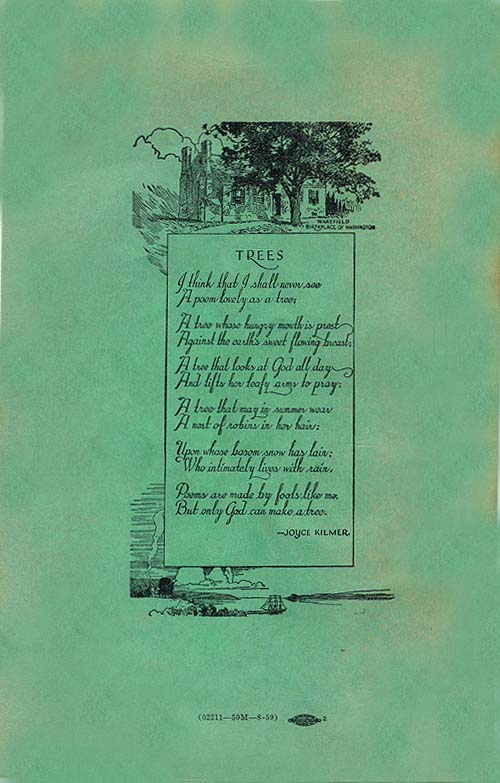 WAKEFIELD
BIRTHPLACE OF WASHINGTON
TREES
I think that I shall never see
A poem lovely as a tree;
A tree whose hungry mouth is prest
Against the earth's sweet flowing breast;
A tree that looks at God all day
And lifts her leafy arms to pray;
A tree that may in summer wear
A nest of robins in her hair;
Upon whose bosom snow has lain;
Who intimately lives with rain.
Poems are made by fools like me,
But only God can make a tree.
—JOYCE KILMER
(02211—50M—8-59) 2